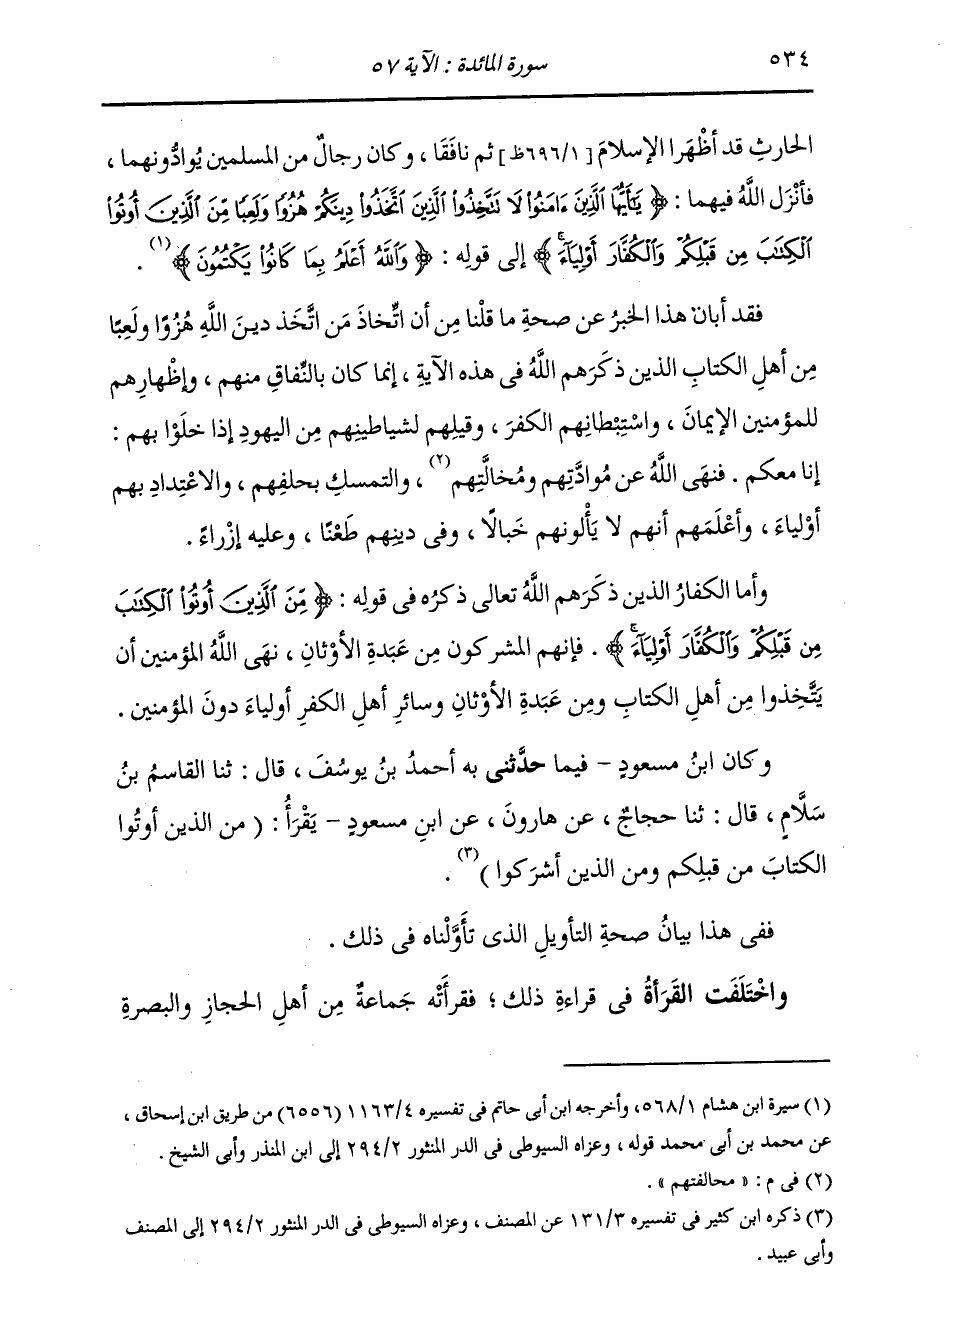 ٥٣٤
سورة المائدة : الآية ٥٧
الحارثِ قد أظْهَرا الإسلامَ [٦٩٦/١ظ] ثم نافَقَا ، وكان رجالٌ من المسلمين يُوادُّونهما ،
فأنْزَل اللَّهُ فيهما : ﴿ يَٰٓأَيُّهَا ٱلَّذِينَ ءَامَنُوا۟ لَا تَتَّخِذُوا۟ ٱلَّذِينَ ٱتَّخَذُوا۟ دِينَكُمْ هُزُوًا وَلَعِبًا مِّنَ ٱلَّذِينَ أُوتُوا۟
ٱلْكِتَٰبَ مِن قَبْلِكُمْ وَٱلْكُفَّارَ أَوْلِيَآءَ ۚ ﴾ إلى قولِه : ﴿ وَٱللَّهُ أَعْلَمُ بِمَا كَانُوا۟ يَكْتُمُونَ ﴾(١) .
فقد أبان هذا الخبرُ عن صحةِ ما قلْنا مِن أن اتِّخاذَ مَن اتَّخَذ دينَ اللَّهِ هُزُوًا ولَعِبًا
مِن أهلِ الكتابِ الذين ذكَرَهم اللَّهُ فى هذه الآيةِ ، إنما كان بالنِّفاقِ منهم ، وإظْهارِهم
للمؤمنين الإيمانَ ، واسْتِبْطانِهم الكفرَ ، وقيلِهم لشياطينِهم مِن اليهودِ إذا خلَوْا بهم :
إنا معكم . فنهَى اللَّهُ عن مُوادَّتِهم ومُخالَّتِهم(٢) ، والتمسكِ بحلفِهم ، والاعْتِدادِ بهم
أوْلياءَ ، وأعْلَمَهم أنهم لا يَأْلونهم خَبالًا ، وفى دينِهم طَعْنًا ، وعليه إزْراءً .
وأما الكفارُ الذين ذكَرَهم اللَّهُ تعالى ذكرُه فى قولِه : ﴿ مِّنَ ٱلَّذِينَ أُوتُوا۟ ٱلْكِتَٰبَ
مِن قَبْلِكُمْ وَٱلْكُفَّارَ أَوْلِيَآءَ ۚ ﴾ . فإنهم المشركون مِن عَبَدةِ الأوْثانِ ، نهَى اللَّهُ المؤمنين أن
يَتَّخِذوا مِن أهلِ الكتابِ ومِن عَبَدةِ الأوْثانِ وسائرِ أهلِ الكفرِ أولياءَ دونَ المؤمنين .
وكان ابنُ مسعودٍ - فيما حدَّثنى به أحمدُ بنُ يوسُفَ ، قال : ثنا القاسمُ بنُ
سَلَّامٍ ، قال : ثنا حجاجٌ ، عن هارونَ ، عن ابنِ مسعودٍ - يَقْرَأُ : ( من الذين أوتُوا
الكتابَ من قبلِكم ومن الذين أشرَكوا )(٣) .
ففى هذا بيانُ صحةِ التأويلِ الذى تأَوَّلْناه فى ذلك .
واخْتَلَفَت القَرَأةُ فى قراءةِ ذلك ؛ فقرأَتْه جَماعةٌ مِن أهلِ الحجازِ والبصرةِ
(١) سيرة ابن هشام ٥٦٨/١، وأخرجه ابن أبى حاتم فى تفسيره ١١٦٣/٤ (٦٥٥٦) من طريق ابن إسحاق ،
عن محمد بن أبى محمد قوله ، وعزاه السيوطى فى الدر المنثور ٢٩٤/٢ إلى ابن المنذر وأبى الشيخ .
(٢) فى م : « محالفتهم » .
(٣) ذكره ابن كثير فى تفسيره ١٣١/٣ عن المصنف ، وعزاه السيوطى فى الدر المنثور ٢٩٤/٢ إلى المصنف
وأبى عبيد .